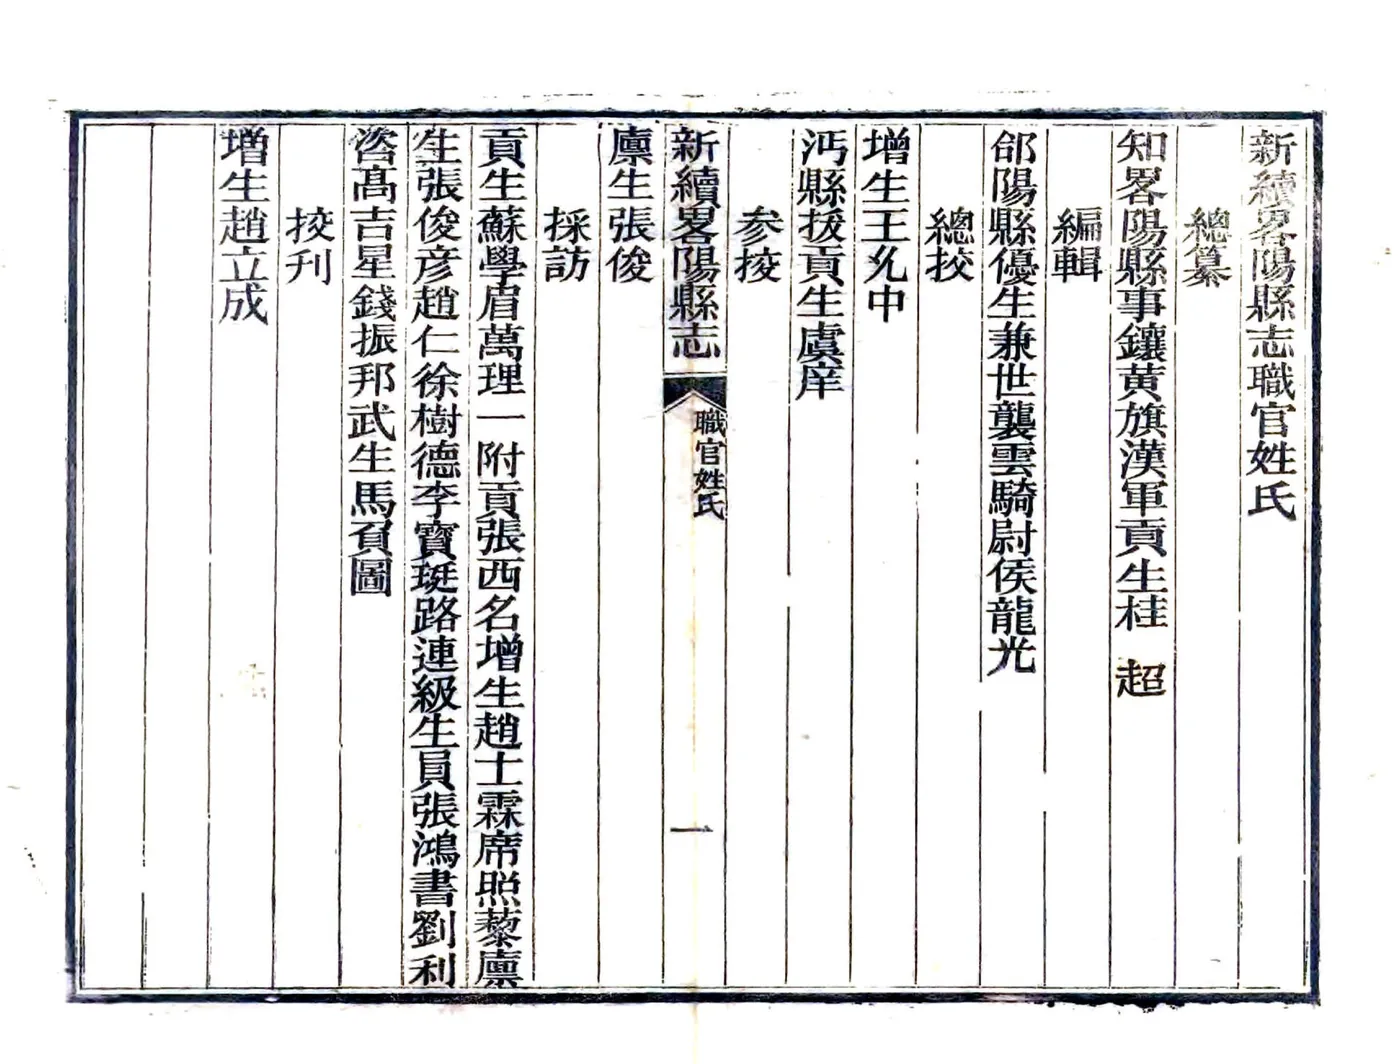 新續畧陽縣志職官姓氏
總纂
知畧陽縣事鑲黃旗漢軍貢生桂 超
編輯
郃陽縣優生兼世襲雲騎尉侯龍光
總挍
增生王允中
沔縣拔貢生虞庠
参挍
新續畧陽縣志
職官姓氏
一
廪生張俊
採訪
貢生蘇學眉萬理一 附貢張西名增生趙士霖席照藜廪
生張俊彦趙仁徐樹德李寳珽路連級生員張鴻書劉利
濱髙吉星錢振邦武生馬負圖
挍刊
增生趙立成